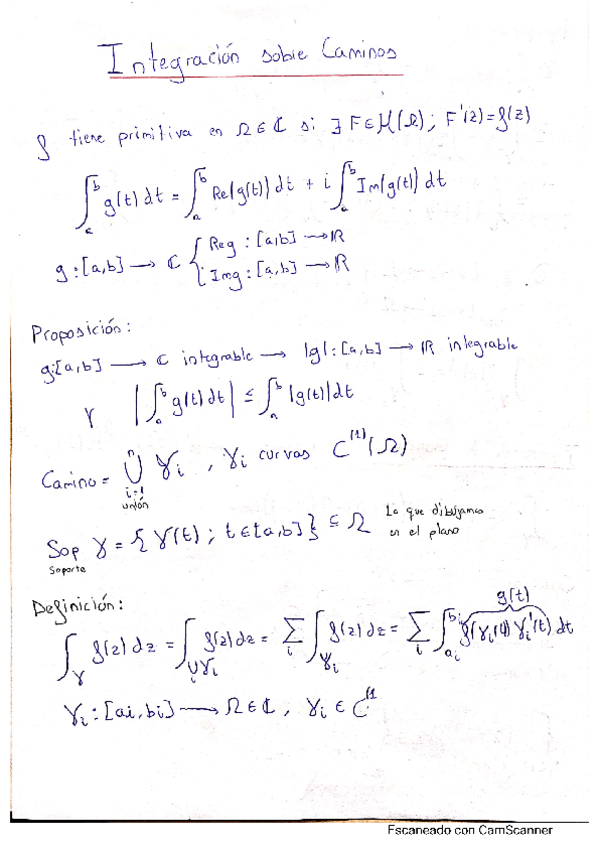 Integración sobre Caminos
f tiene primitiva en Ω∈ℂ si ∃ F∈ℋ(Ω); F'(z)=f(z)
∫_a^b g(t) dt = ∫_a^b Re(g(t)) dt + i ∫_a^b Im(g(t)) dt
g:[a,b] → ℂ { Re g : [a,b] → ℝ
Im g : [a,b] → ℝ
Proposición:
g:[a,b] → ℂ integrable → |g| : [a,b] → ℝ integrable
Y |∫_a^b g(t) dt| ≤ ∫_a^b |g(t)| dt
Camino = ⋃_{i=1}^n γ_i , γ_i curvas C^(1)(Ω)
unión
Sop γ = { γ(t) ; t∈[a,b] } ⊆ Ω Lo que dibujamos
en el plano
Soporte
Definición:
g(t)
∫_γ f(z) dz = ∫_{∪γ_i} f(z) dz = Σ_i ∫_{γ_i} f(z) dz = Σ_i ∫_{a_i}^{b_i} f(γ_i(t)) γ_i'(t) dt
γ_i : [ai, bi] → Ω∈ℂ, γ_i ∈ C^(1
Escaneado con CamScanner